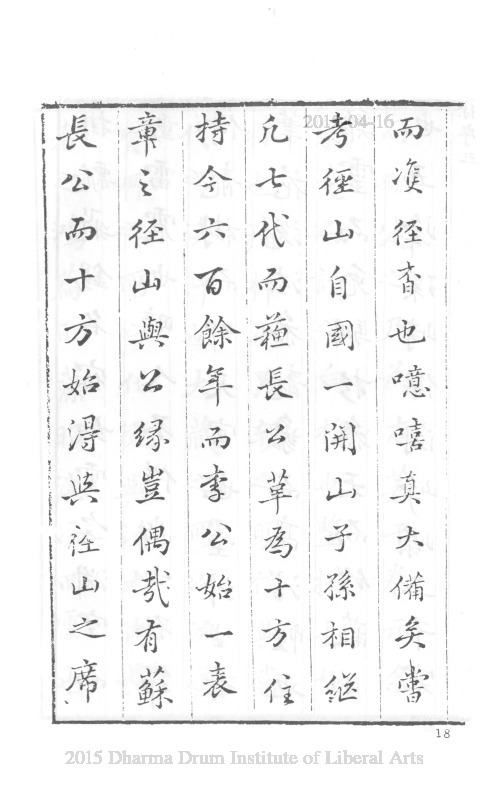 而復徑直也噫嘻真大備矣嘗
考徑山自國一開山子孫相繼
凡七代而蘓長公革為十方住
持今六百餘年而李公始一表
章之徑山與公縁豈偶哉有蘇
長公而十方始得與徑山之席
2015-04-16
18
2015 Dharma Drum Institute of Liberal Arts